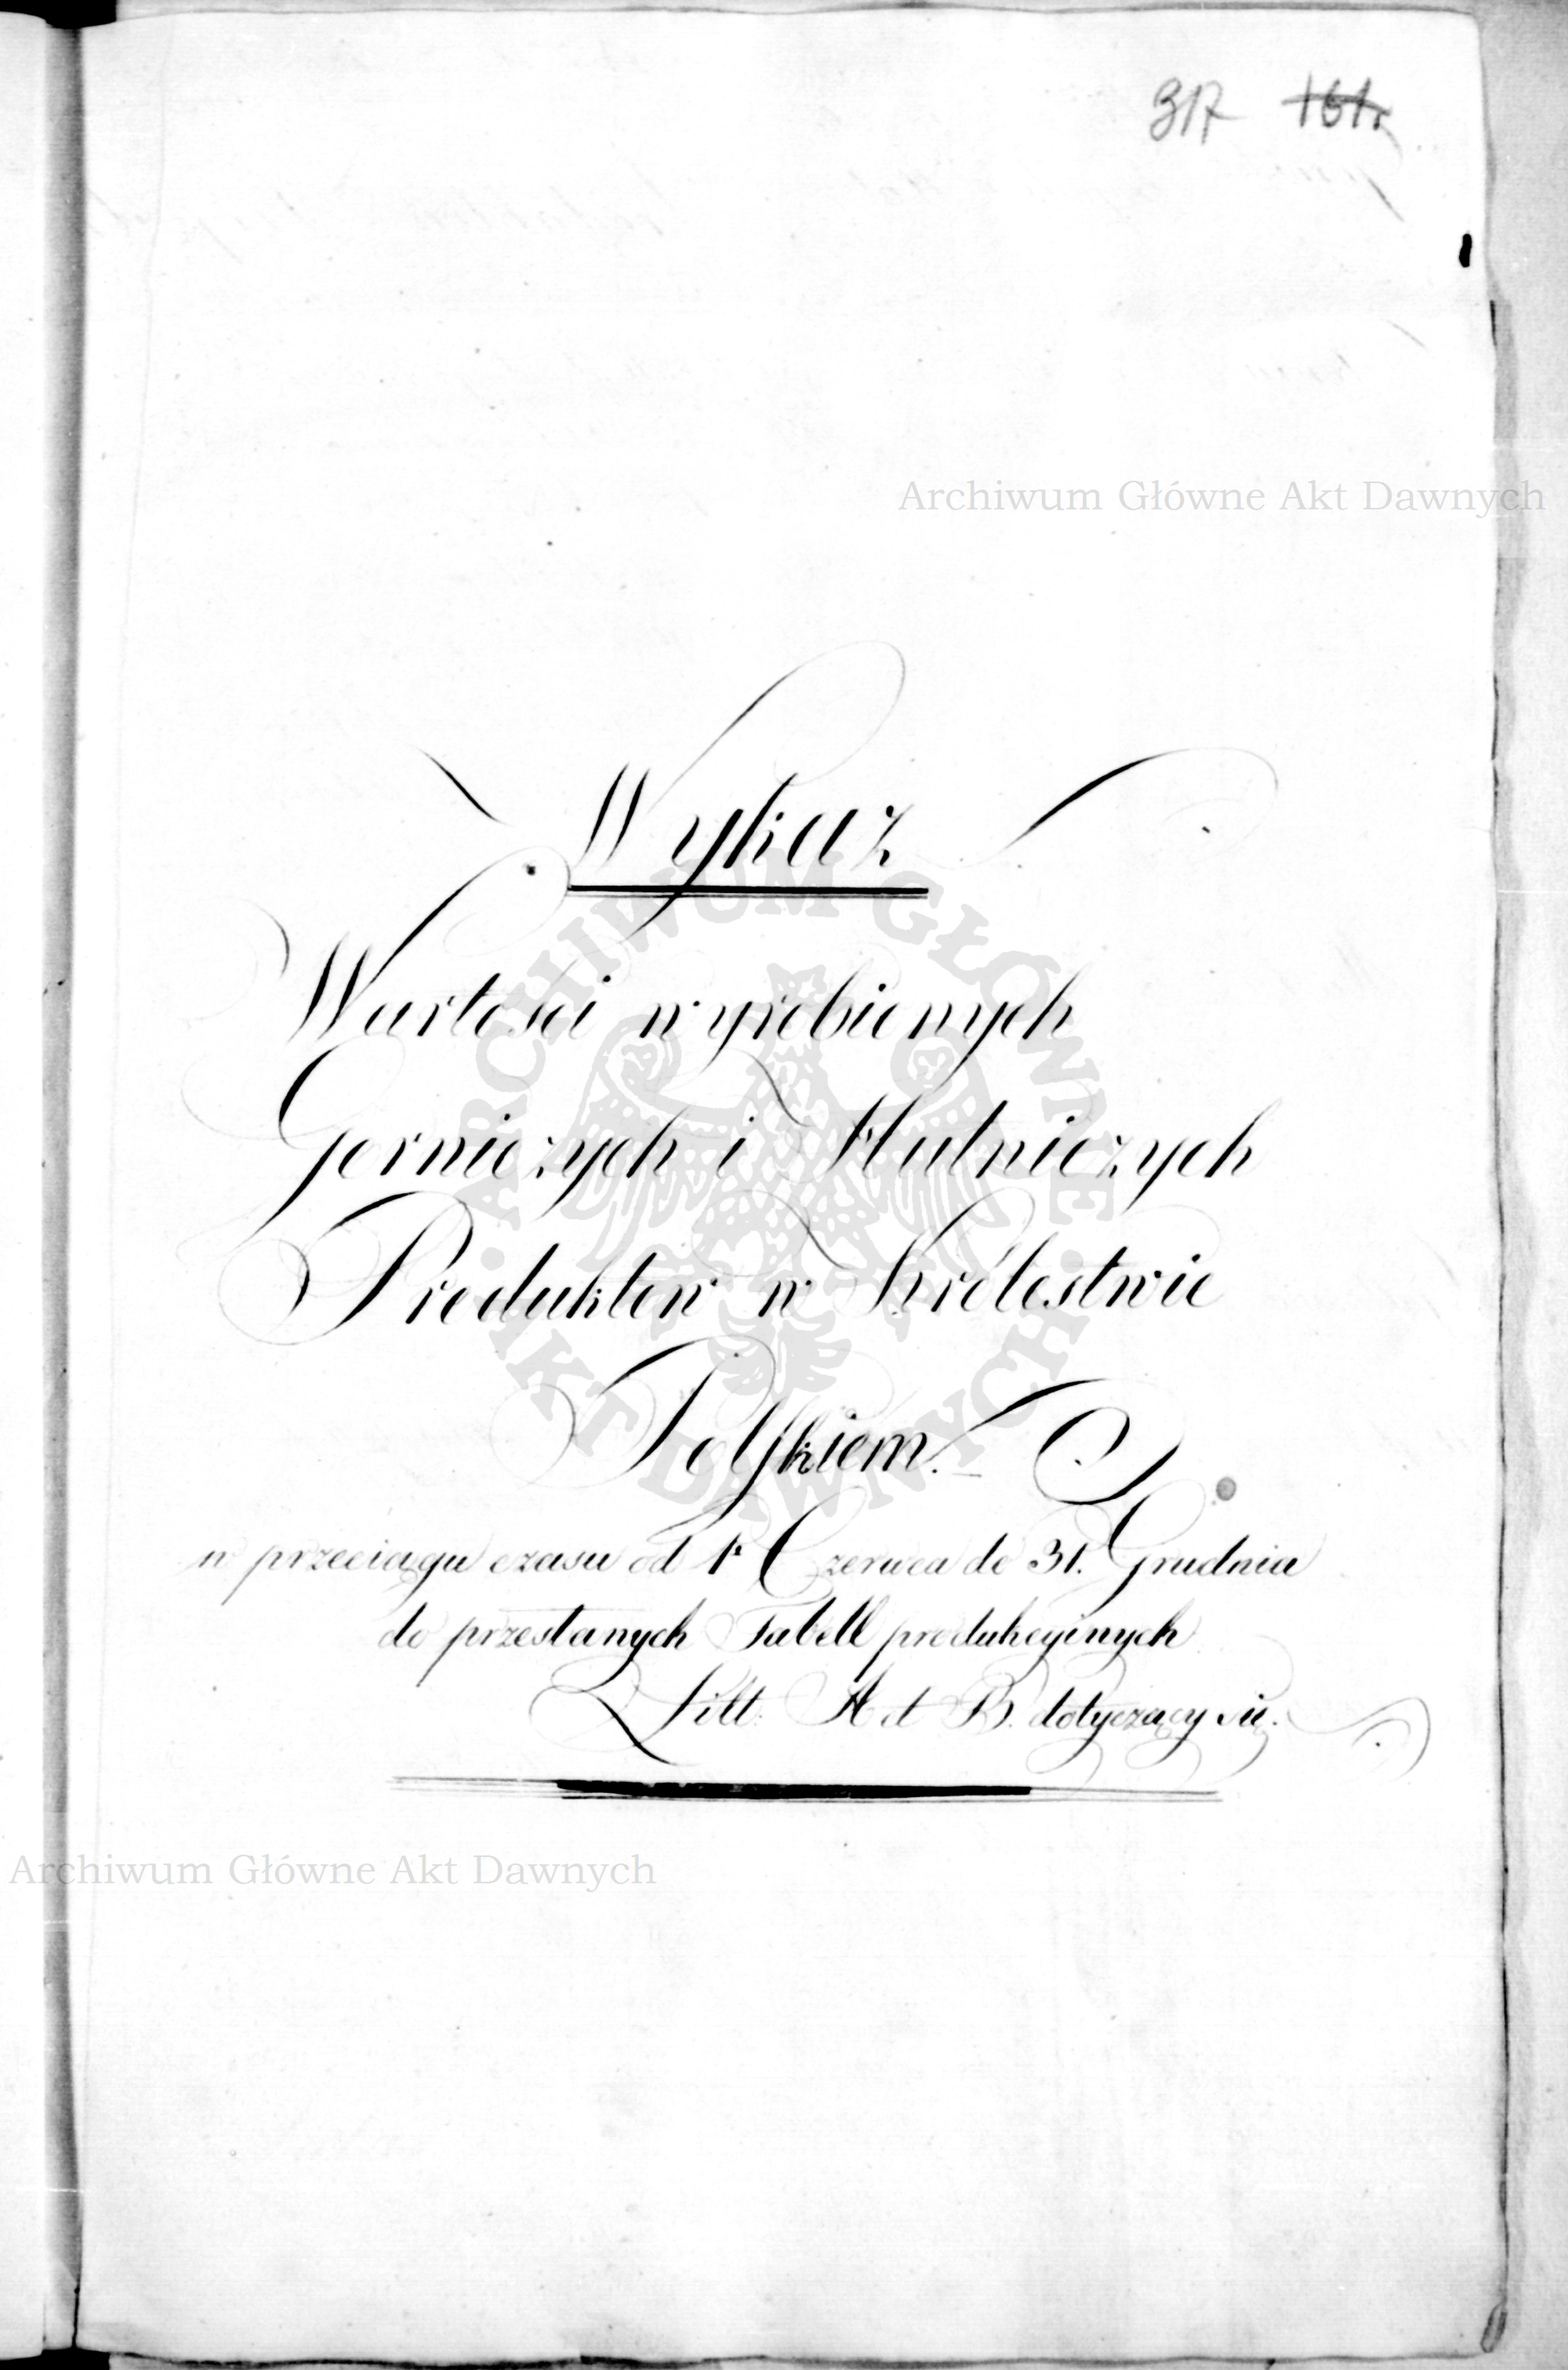 317 161.
Archiwum Główne Akt Dawnych
Wykaz
Wartosci wyrobionych
Gorniczych i Hutniczych
Produktow w Królestwie
Polskiem.
w przeciągu czasu od 1º Czerwca do 31. Grudnia
do przesłanych Tabell produkcyinych
Litt: A et B. dotyczący się.
ARCHIWUM GŁÓWNE · AKT DAWNYCH ·
Archiwum Główne Akt Dawnych